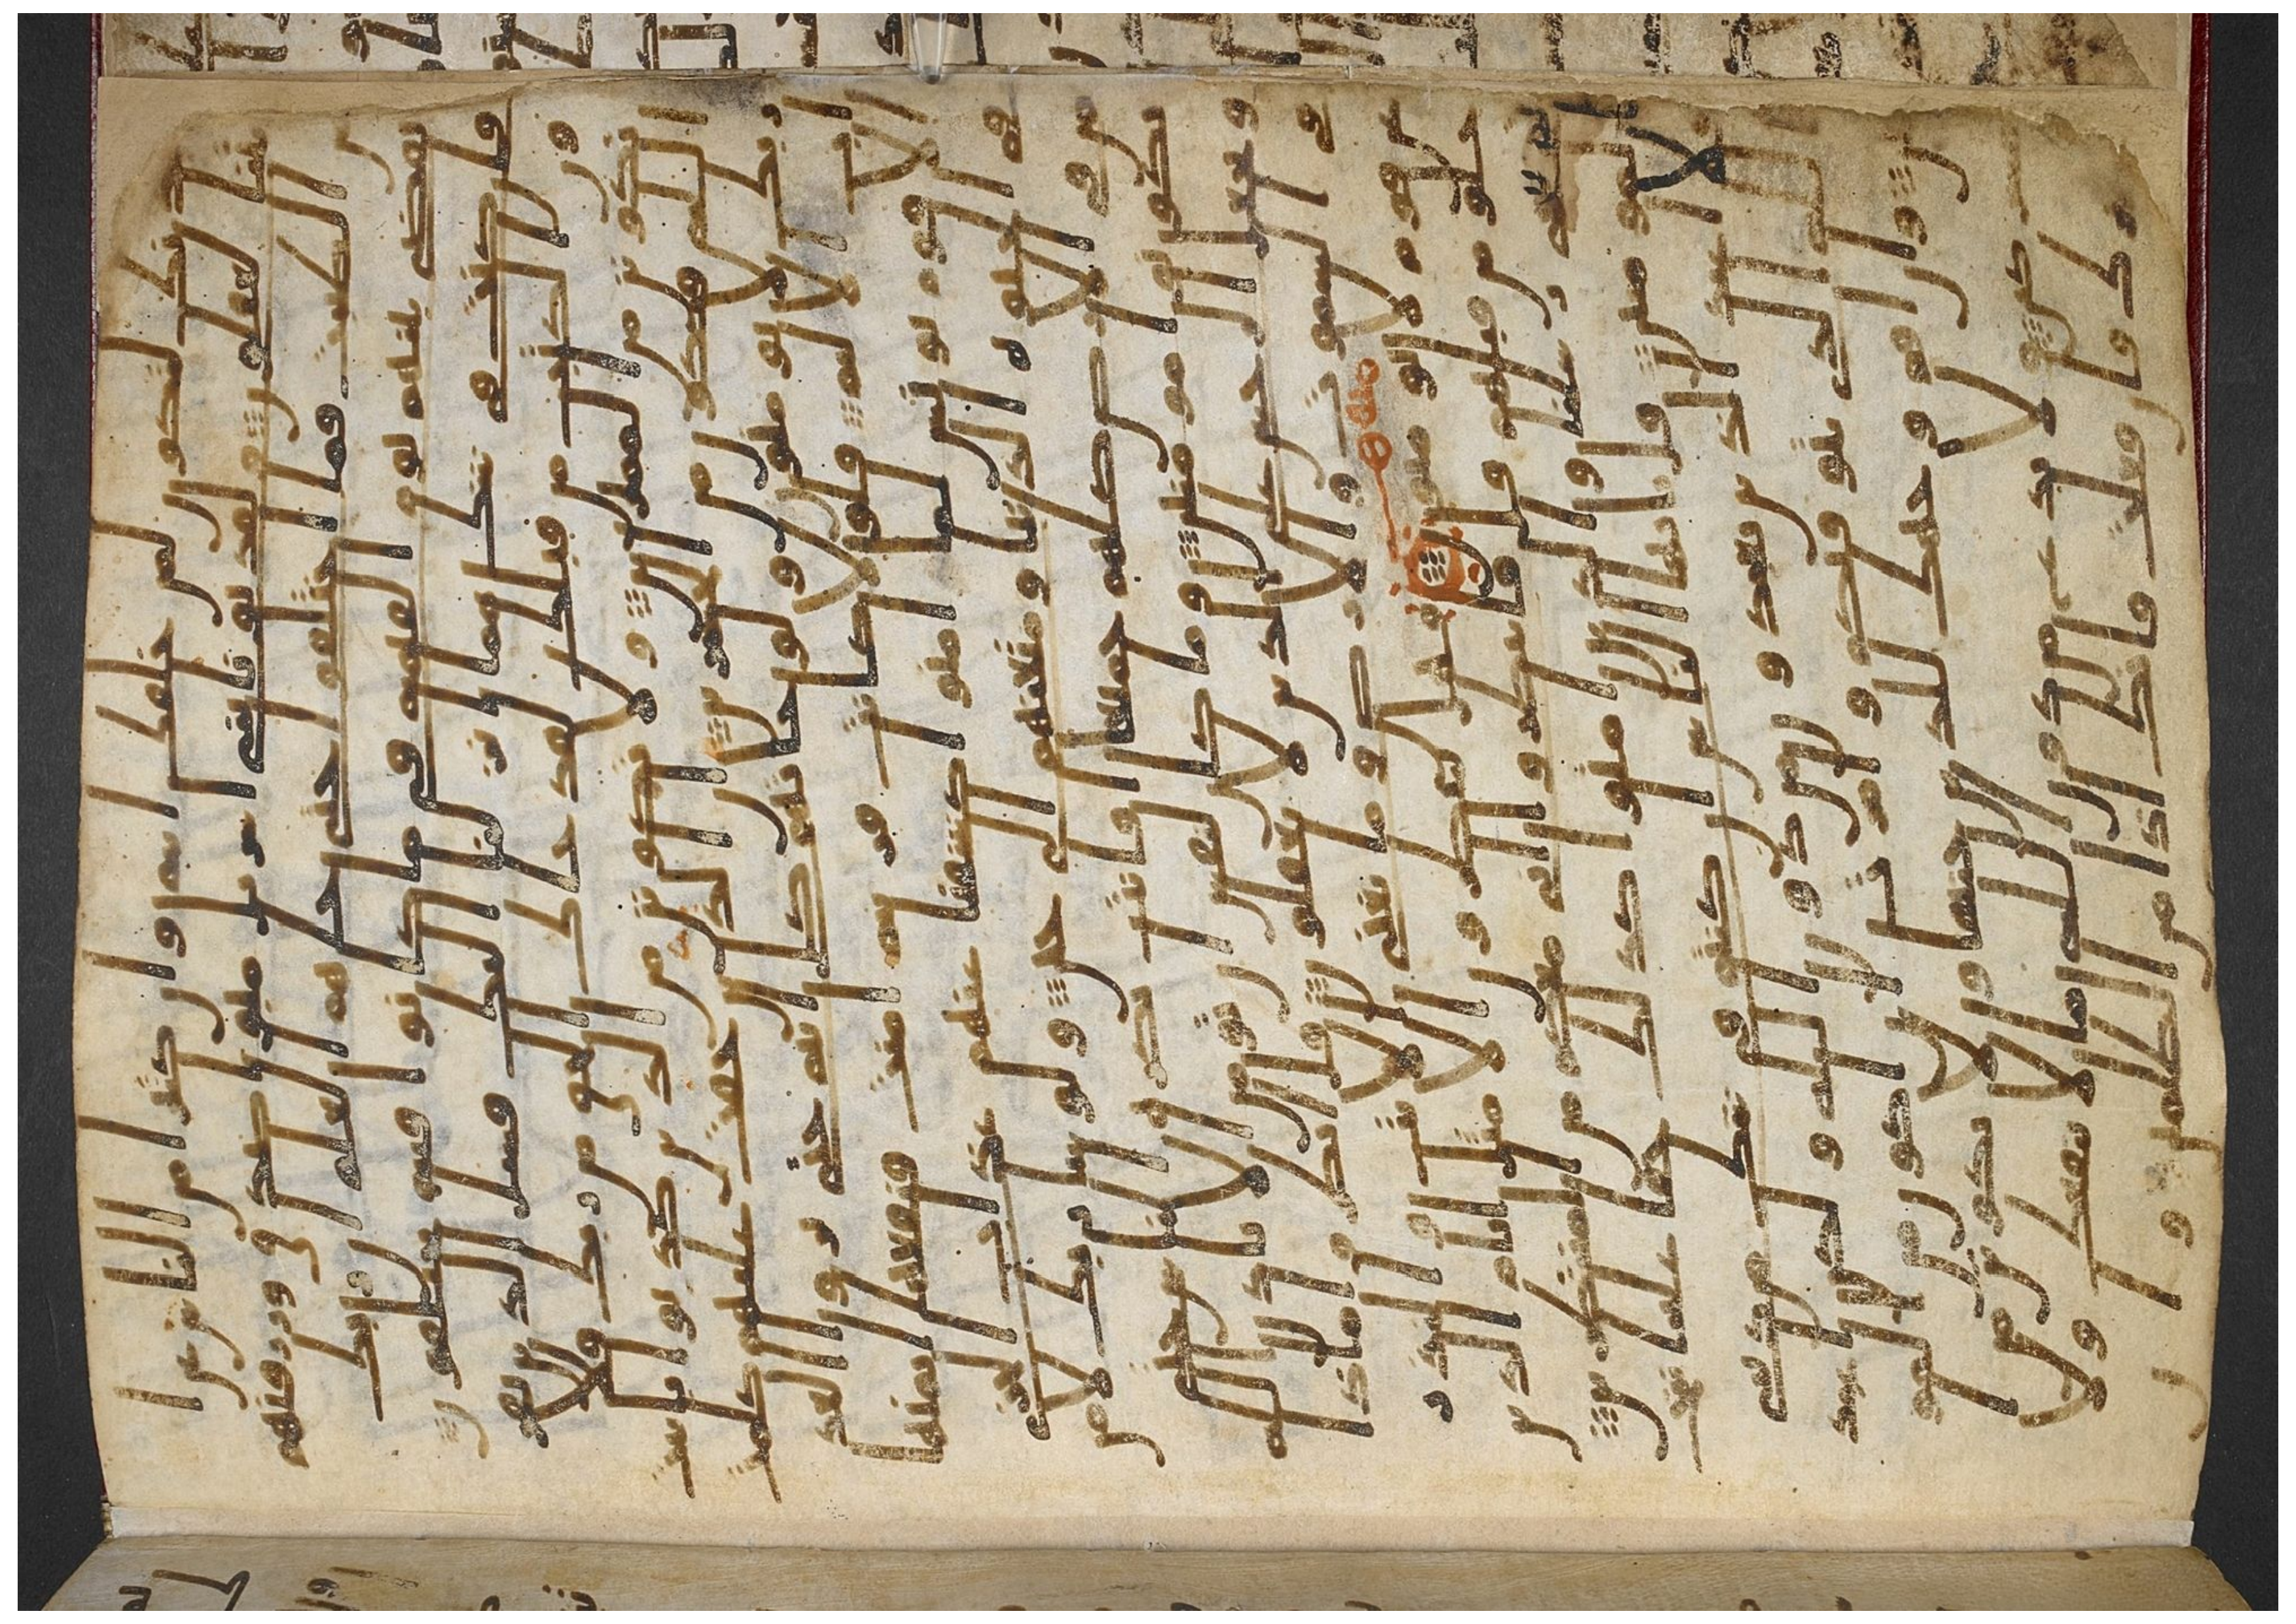 ببدنك لتكون لمن خلفك ايه وان كثيرا من الناس عن ا
يتنا لغفلون ولقد بوانا بني اسريل مبوا صدق ورزقنهم
من الطيبت فما اختلفوا حتى جاهم العلم ان ربك
يقضي بينهم يوم القيمه فيما كانوا فيه يختلفو
ن فان كنت في شك مما انزلنا اليك فسل الذين يقر
ون الكتب من قبلك لقد جاك الحق من ربك فلا
تكونن من الممترين ولا تكونن من الذين كذبوا بايت
الله فتكون من الخسرين ان الذين حقت عليهم كلمت
ربك لا يومنون ولو جاتهم كل ايه حتى يروا العذ
اب الاليم فلولا كانت قريه امنت فنفعها ايمنها
الا قوم يونس لما امنوا كشفنا عنهم عذاب الخزي
في الحيوه الدنيا ومتعنهم الى حين ولو شا ربك لا
من من في الارض كلهم جميعا افانت تكره الناس حتى
يكونوا مومنين وما كان لنفس ان تومن الا باذن الله
ويجعل الرجس على الذين لا يعقلون قل انظروا ماذا
في السموت والارض وما تغني الايت والنذر
عن قوم لا يومنون فهل ينتظرون الا مثل ايام الذين
خلوا من قبلهم قل فانتظروا اني معكم من المنتظرين
ثم ننجي رسلنا والذين امنوا كذلك حقا علينا ننج
المومنين قل يايها الناس ان كنتم في شك من ديني
فلا اعبد الذين تعبدون من دون الله ولكن اعبد
الله الذي يتوفيكم وامرت ان اكون من المومنين
وان اقم وجهك للدين حنيفا ولا تكونن من
المشركين ولا تدع من دون الله ما لا ينفعك ولا
يضرك فان فعلت فانك اذا من الظلمين وا